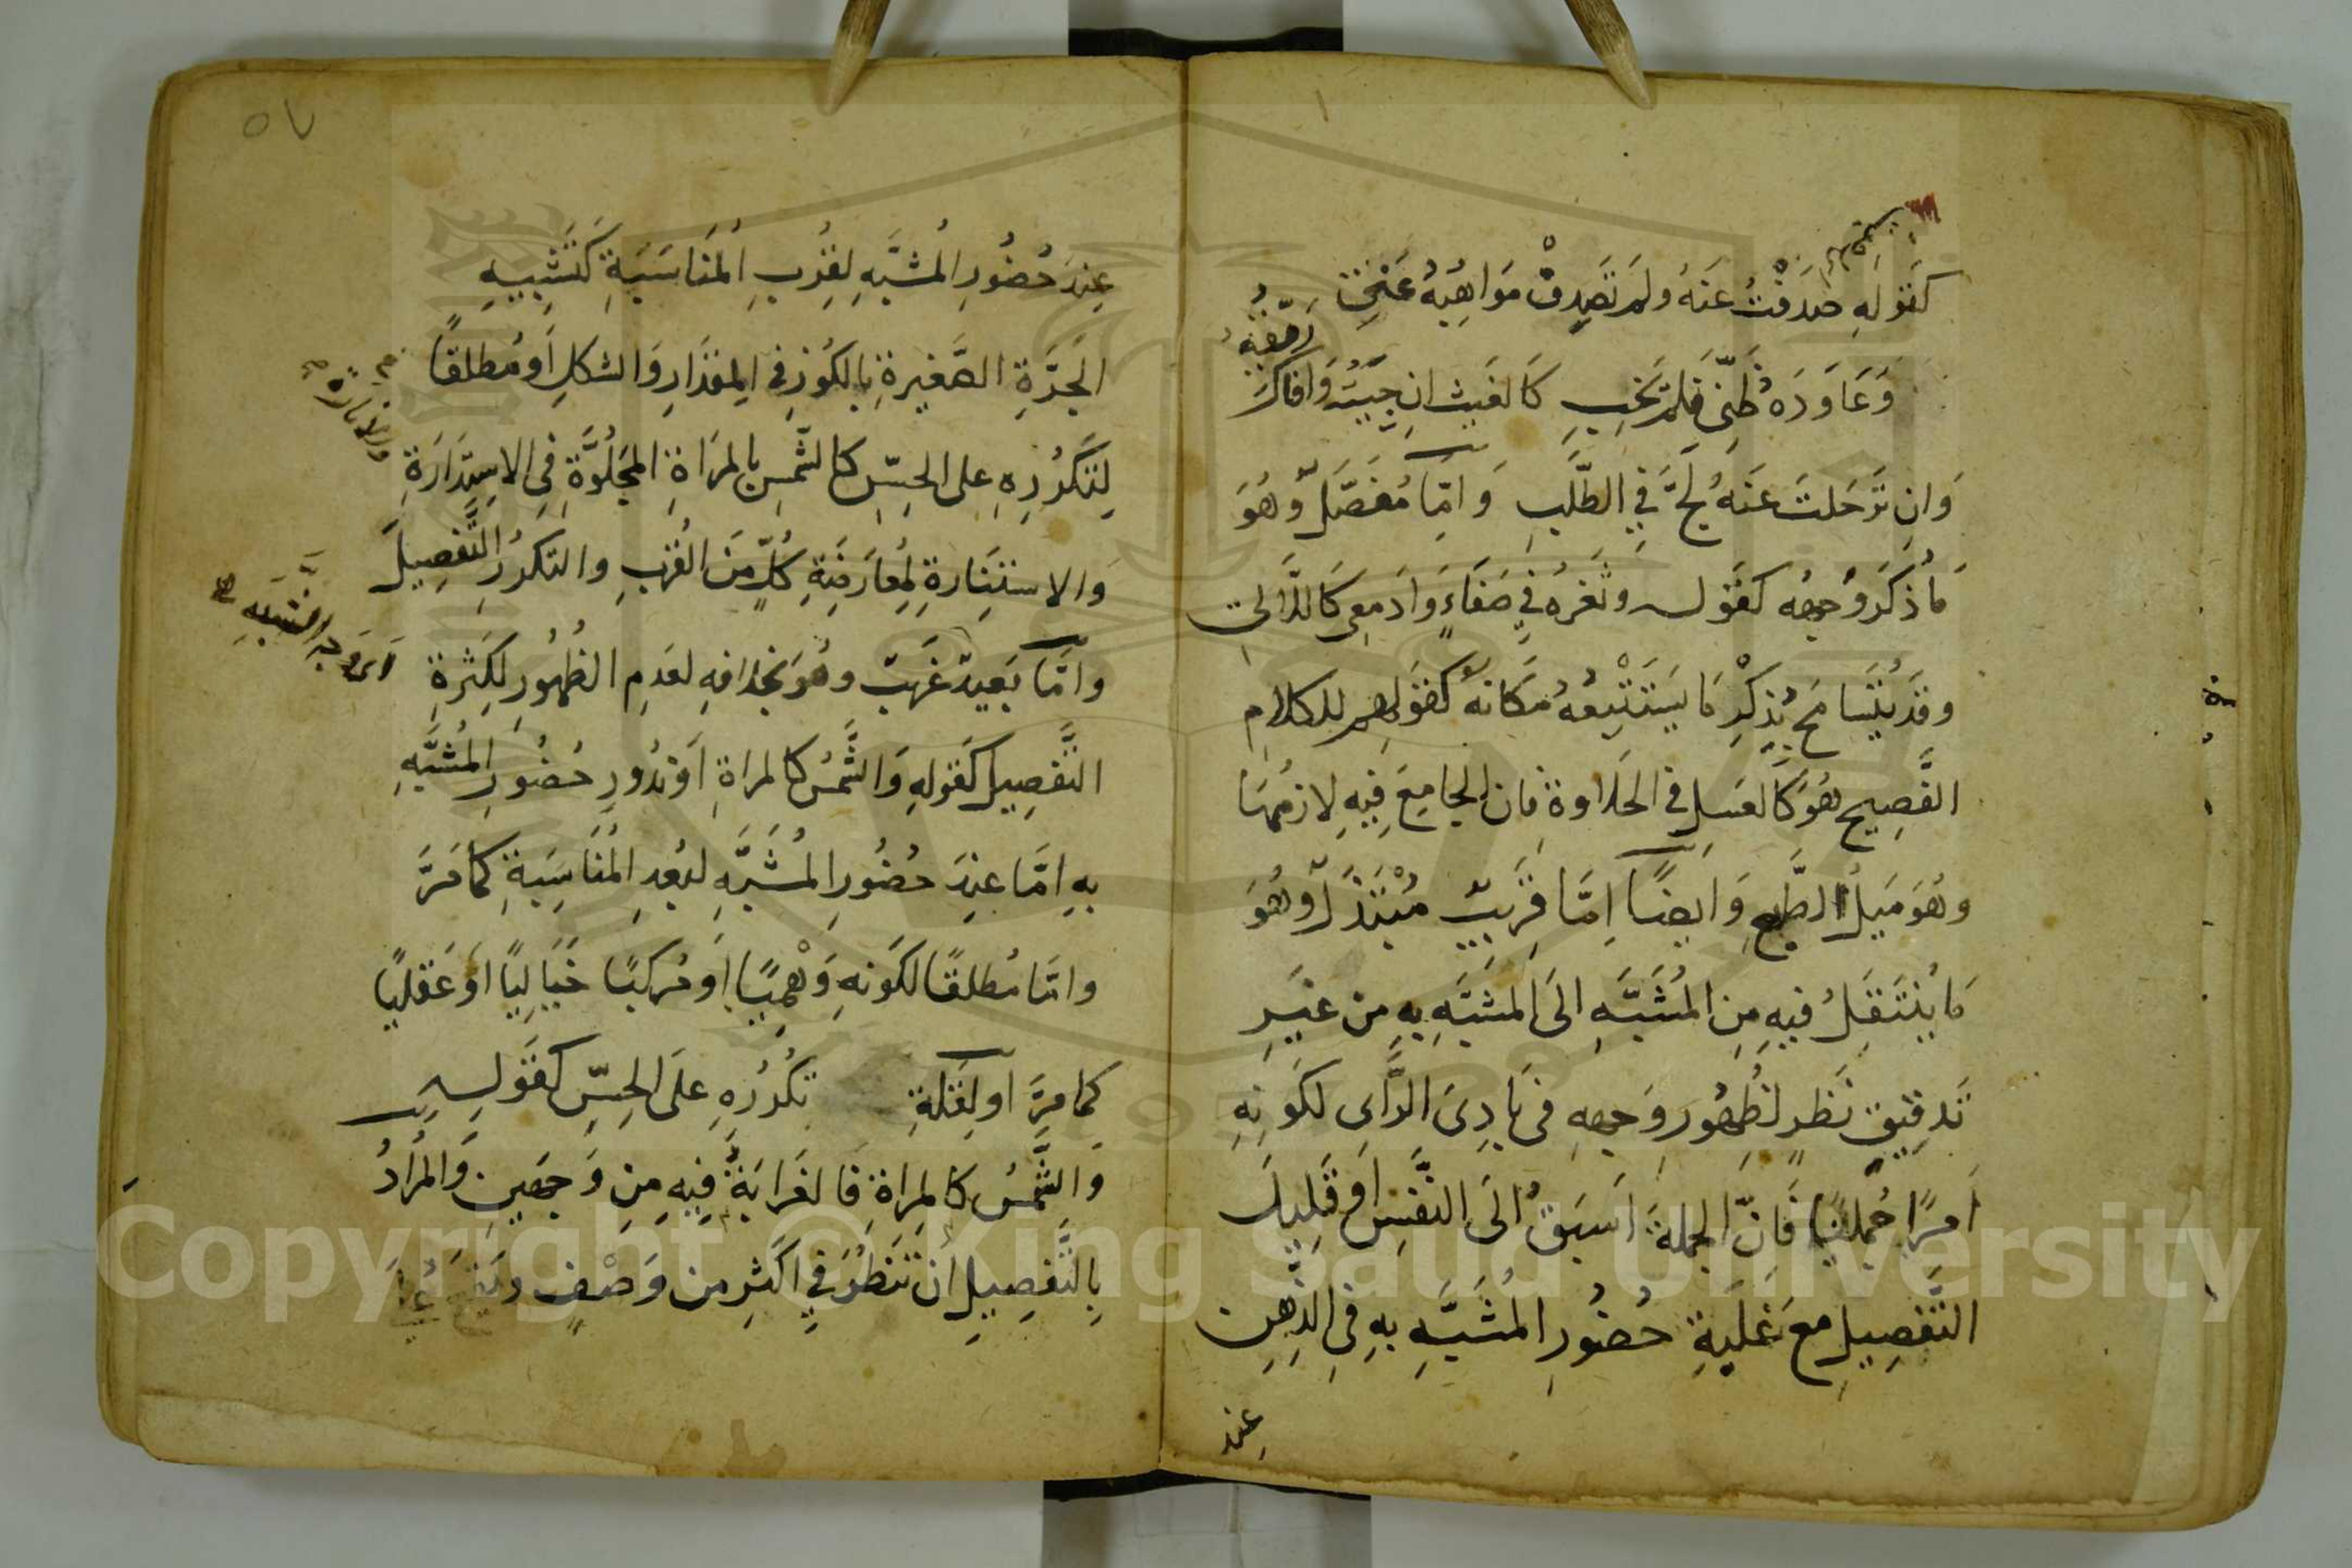 كقوله صدفت عنه ولم تصدف مواهبه عني
وعاوده ظني فلم يخب كالغيث ان جيته وافاك
ريقه
وان ترحلت عنه لج في الطلب واما مفصل وهو
ما ذكر وجهه كقوله وثغره في صفاء وادمعى كاللآلى
وقد يتسامح بذكر ما يستتبعه مكانه كقولهم للكلام
الفصيح هو كالعسل في الحلاوة فان الجامع فيه لازمها
وهو ميل الطبع وايضا اما قريب مبتذل وهو
ما ينتقل فيه من المشبه الى المشبه به من غير
تدقيق نظر لظهور وجهه فى بادى الراى لكونه
امرا جمليا فان الجملة اسبق الى النفس او قليل
التفصيل مع غلبة حضور المشبه به فى الذهن
عند
٥٧
عند حضور المشبه لقرب المناسبة كتشبيه
الجرة الصغيرة بالكوز في المقدار والشكل او مطلقا
لتكرره على الحس كالشمس بالمراة المجلوة فى الاستدارة
والاستنارة لمعارضة كل من القرب والتكرر التفصيل
واما بعيد غريب وهو بخلافه لعدم الظهور لكثرة
اى وجه الشبه
التفصيل كقوله والشمس كالمراة او ندور حضور المشبه
به اما عند حضور المشبه لبعد المناسبة كما مر
واما مطلقا لكونه وهميا او مركبا خياليا او عقليا
كما مر او لقلة تكرره على الحس كقوله
والشمس كالمراة فالغرابة فيه من وجهين والمراد
بالتفصيل ان تنظر في اكثر من وصف ويقع على
Copyright © King Saud University